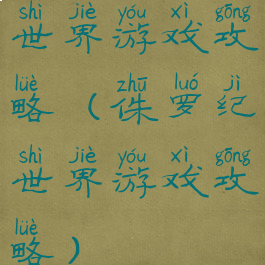 shì jiè yóu xì gōng
世界游戏攻
lüè zhū luó jì
略(侏罗纪
shì jiè yóu xì gōng
世界游戏攻
lüè
略)